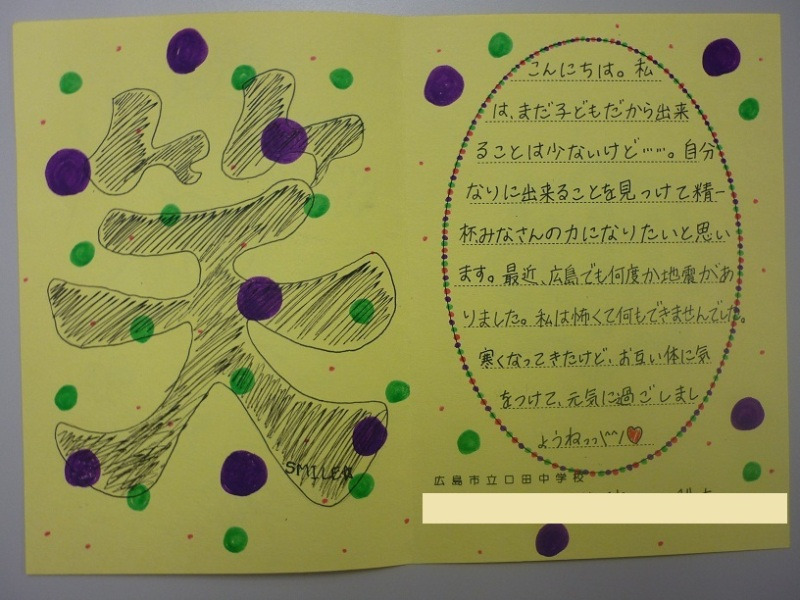 笑
SMILE
こんにちは。私
は、まだ子どもだから出来
ることは少ないけど……。自分
なりに出来ることを見つけて精一
杯みなさんの力になりたいと思い
ます。最近、広島でも何度か地震があ
りました。私は怖くて何もできませんでした。
寒くなってきたけど、お互い体に気
をつけて、元気に過ごしまし
ょうねっっ\^^/
広島市立口田中学校